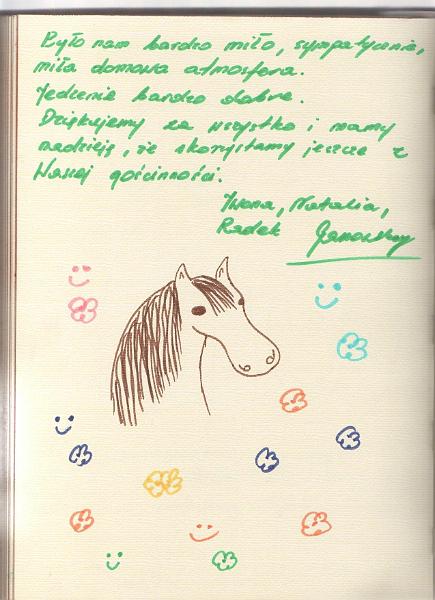 Było nam bardzo miło, sympatycznie,
miła domowa atmosfera.
Jedzenie bardzo dobre.
Dziękujemy za wszystko i mamy
nadzieję, że skorzystamy jeszcze z
Waszej gościnności.
Iwona, Natalia,
Radek Janowscy